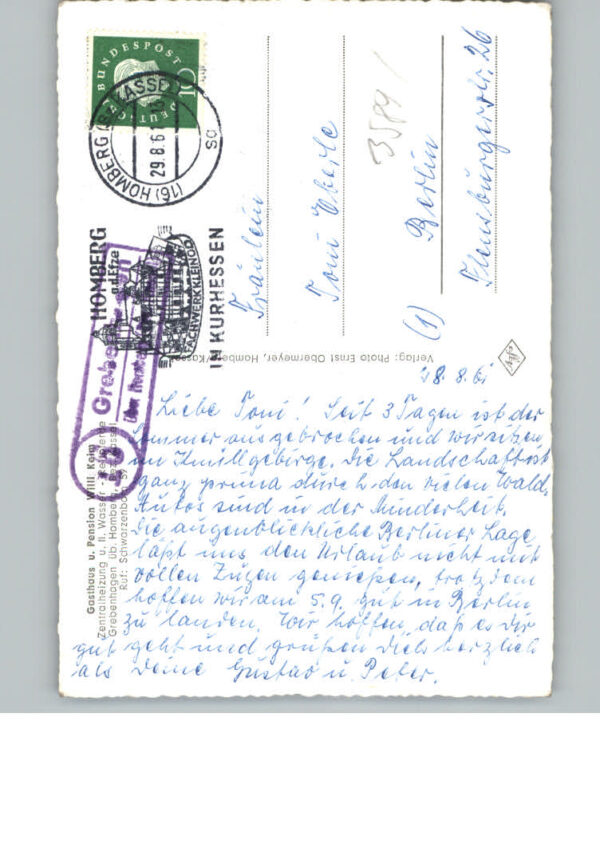 DEUTSCHE BUNDESPOST
10
(16) HOMBERG (BZ. KASSEL)
29.8.61
so
HOMBERG
a.d. Efze
FACHWERKKLEINOD
IN KURHESSEN
16
über Homberg
Fräulein
Toni Eberle
(1) Berlin
Flensburgerstr. 26
3589/
Verlag: Photo Ernst Obermeyer, Homberg/Kassel
Agfa
Gasthaus u. Pension Willi Keim
Zentralheizung u. fl. Wasser
Grebenhagen üb. Homberg, Bez. Kassel
Ruf: Schwarzenborn
28.8.61
Liebe Toni! Seit 3 Tagen ist der
Sommer ausgebrochen und wir sitzen
im Knüllgebirge. Die Landschaft ist
ganz prima durch den vielen Wald.
Autos sind in der Minderheit.
Die augenblickliche Berliner Lage
läßt uns den Urlaub nicht mit
vollen Zügen genießen, trotzdem
hoffen wir am 5.9. gut in Berlin
zu landen. Wir hoffen, daß es Dir
gut geht und grüßen Dich herzlich
als Deine Gustav u. Peter.